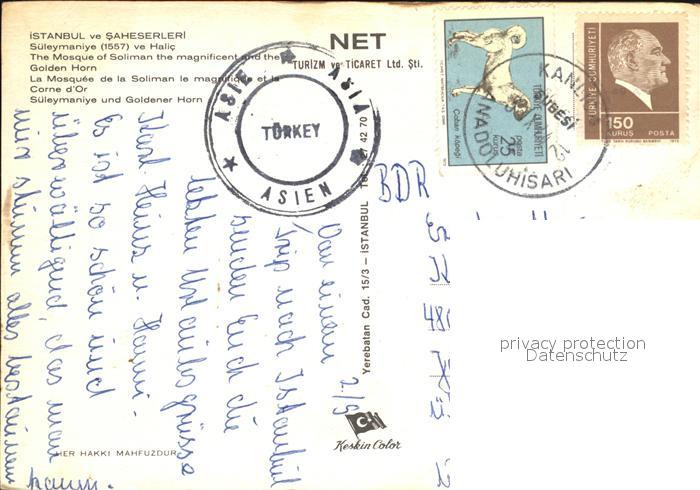 İSTANBUL ve ŞAHESERLERİ
Süleymaniye (1557) ve Haliç
The Mosque of Soliman the magnificent and the
Golden Horn
La Mosquée de la Soliman le magnifique et la
Corne d'Or
Süleymaniye und Goldener Horn
NET
TURİZM ve TİCARET Ltd. Şti.
ASIE ★ ASIA ★ ASIEN ★
TÜRKEY
TÜRKİYE CUMHURİYETİ
posta
25
kuruş
Çoban Köpeği
TÜRKİYE CUMHURİYETİ
150
KURUŞ POSTA
ŞUBESİ
BDR
Yerebatan Cad. 15/3 – İSTANBUL
27 42 70
2/9
Von einem
Trip nach Istanbul
senden Euch die
letzten Urlaubsgrüsse
Karl-Heinz u. Hanni.
Es ist so schön und
überwältigend, das man
alles bestaunen
kann.
Keskin Color
HER HAKKI MAHFUZDUR
privacy protection
Datenschutz